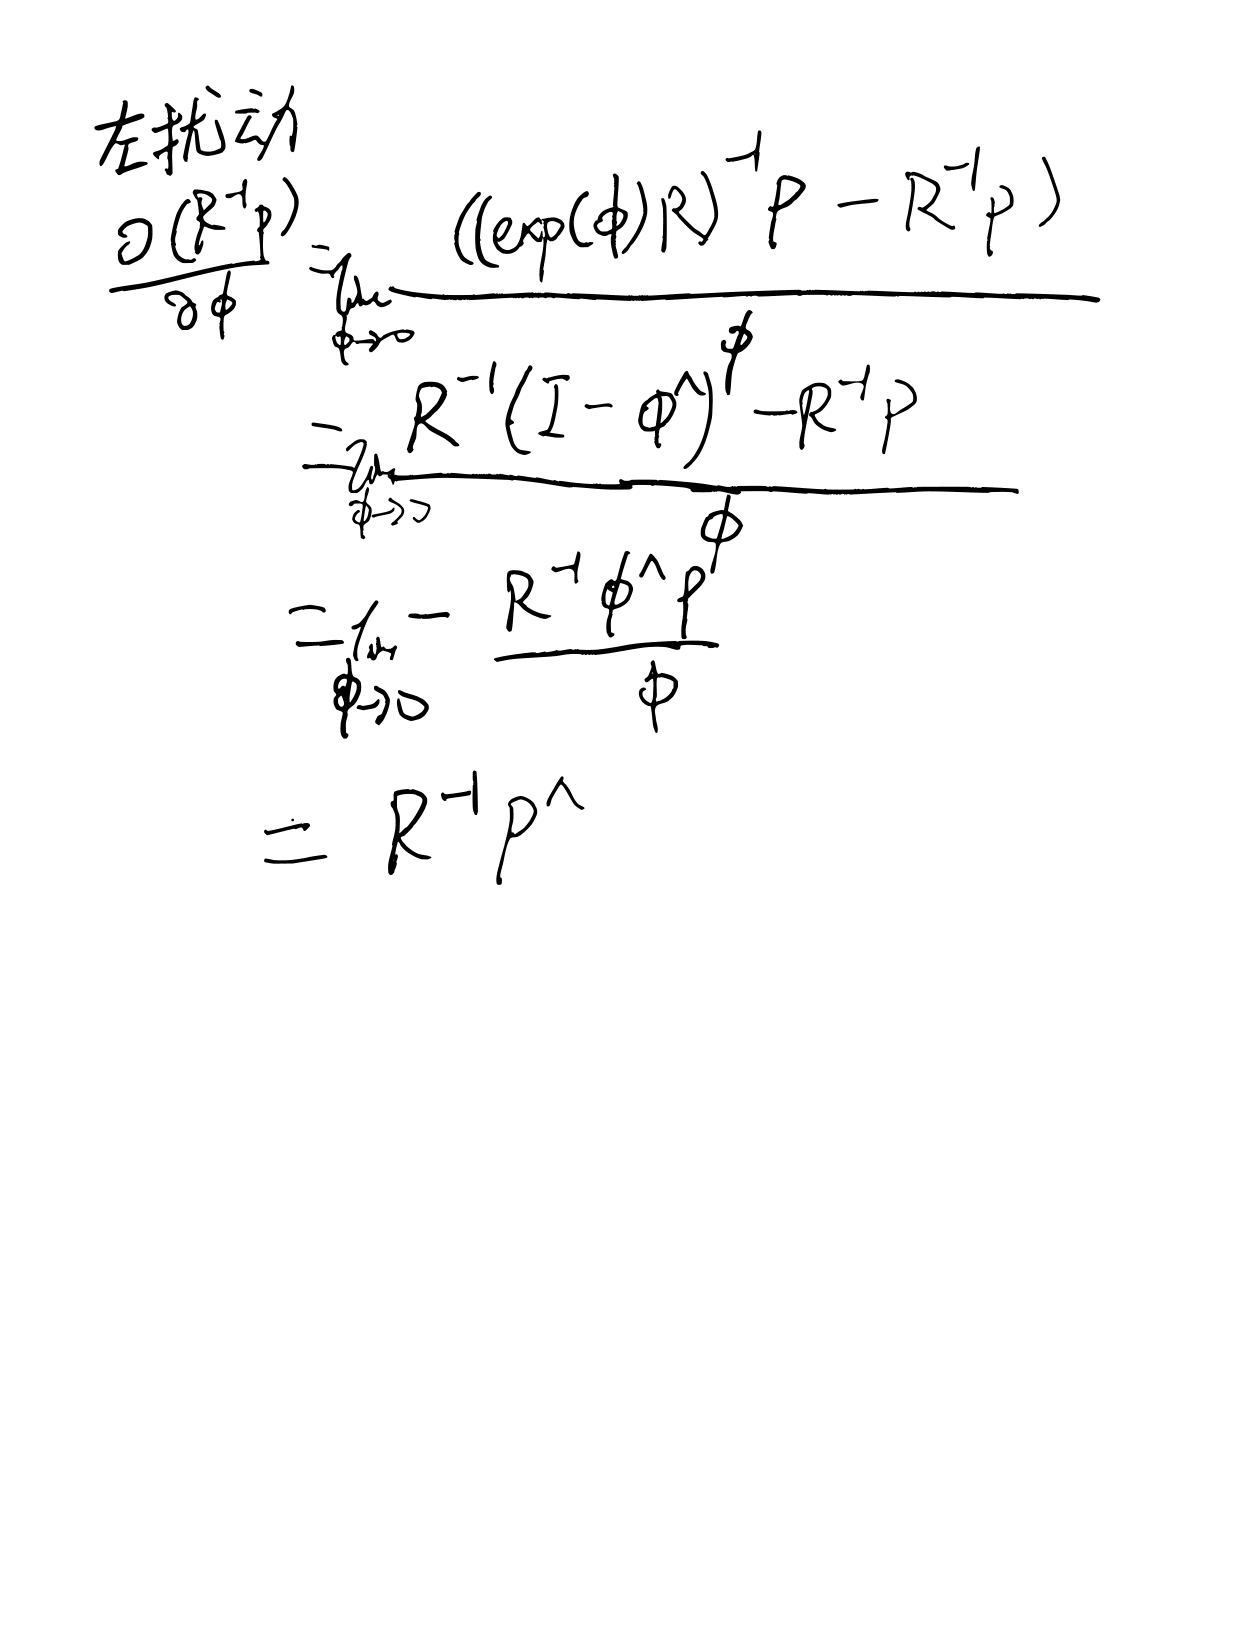 左扰动
∂(R⁻¹p)/∂ϕ = lim ϕ→0 ((exp(ϕ)R)⁻¹p − R⁻¹p)/ϕ
= lim ϕ→0 (R⁻¹(I − ϕ^)p − R⁻¹p)/ϕ
= lim ϕ→0 − R⁻¹ϕ^p/ϕ
= R⁻¹p^